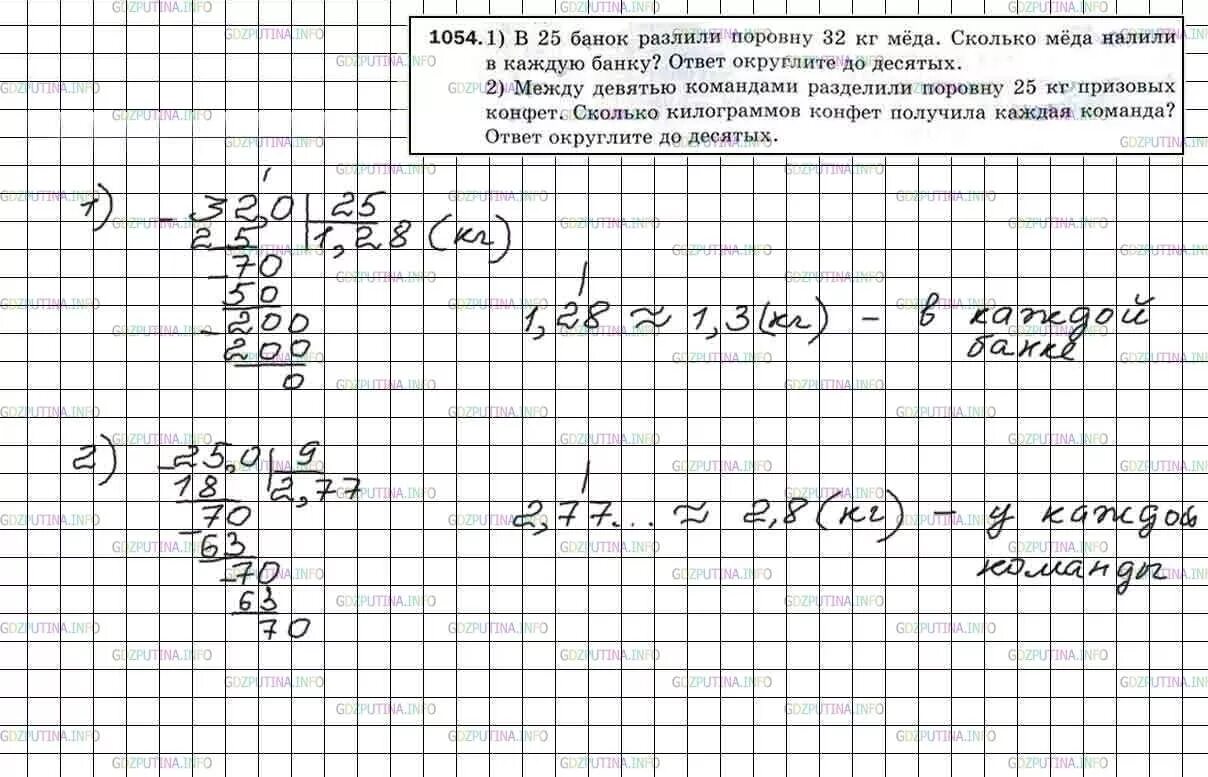 1054. 1) В 25 банок разлили поровну 32 кг мёда. Сколько мёда налили
в каждую банку? Ответ округлите до десятых.
2) Между девятью командами разделили поровну 25 кг призовых
конфет. Сколько килограммов конфет получила каждая команда?
Ответ округлите до десятых.
1) - 32,0 | 25
25 | 1,28 (кг)
- 70
50
- 200
200
0
1,28 ≈ 1,3 (кг) - в каждой
банке
2) - 25,0 | 9
18 | 2,77
70
- 63
- 70
63
70
2,77... ≈ 2,8 (кг) - у каждой
команды
GDZPUTINA.INFO